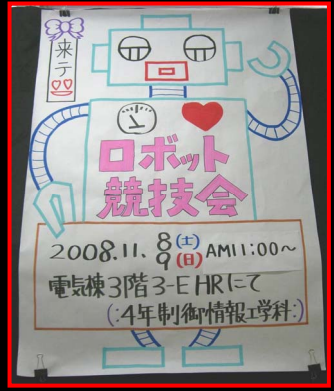 来テ
ロボット
競技会
2008.11. 8(土)
9(日) AM11:00～
電気棟3階3-E HRにて
(:4年制御情報工学科:)